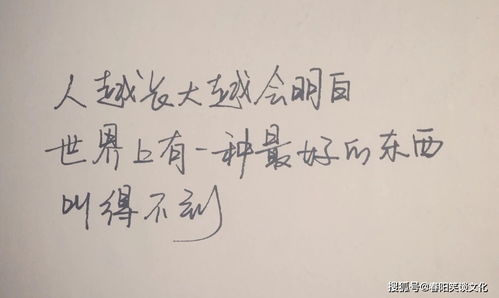 人越长大越会明白
世界上有一种最好的东西
叫得不到
搜狐号@春阳笑谈文化